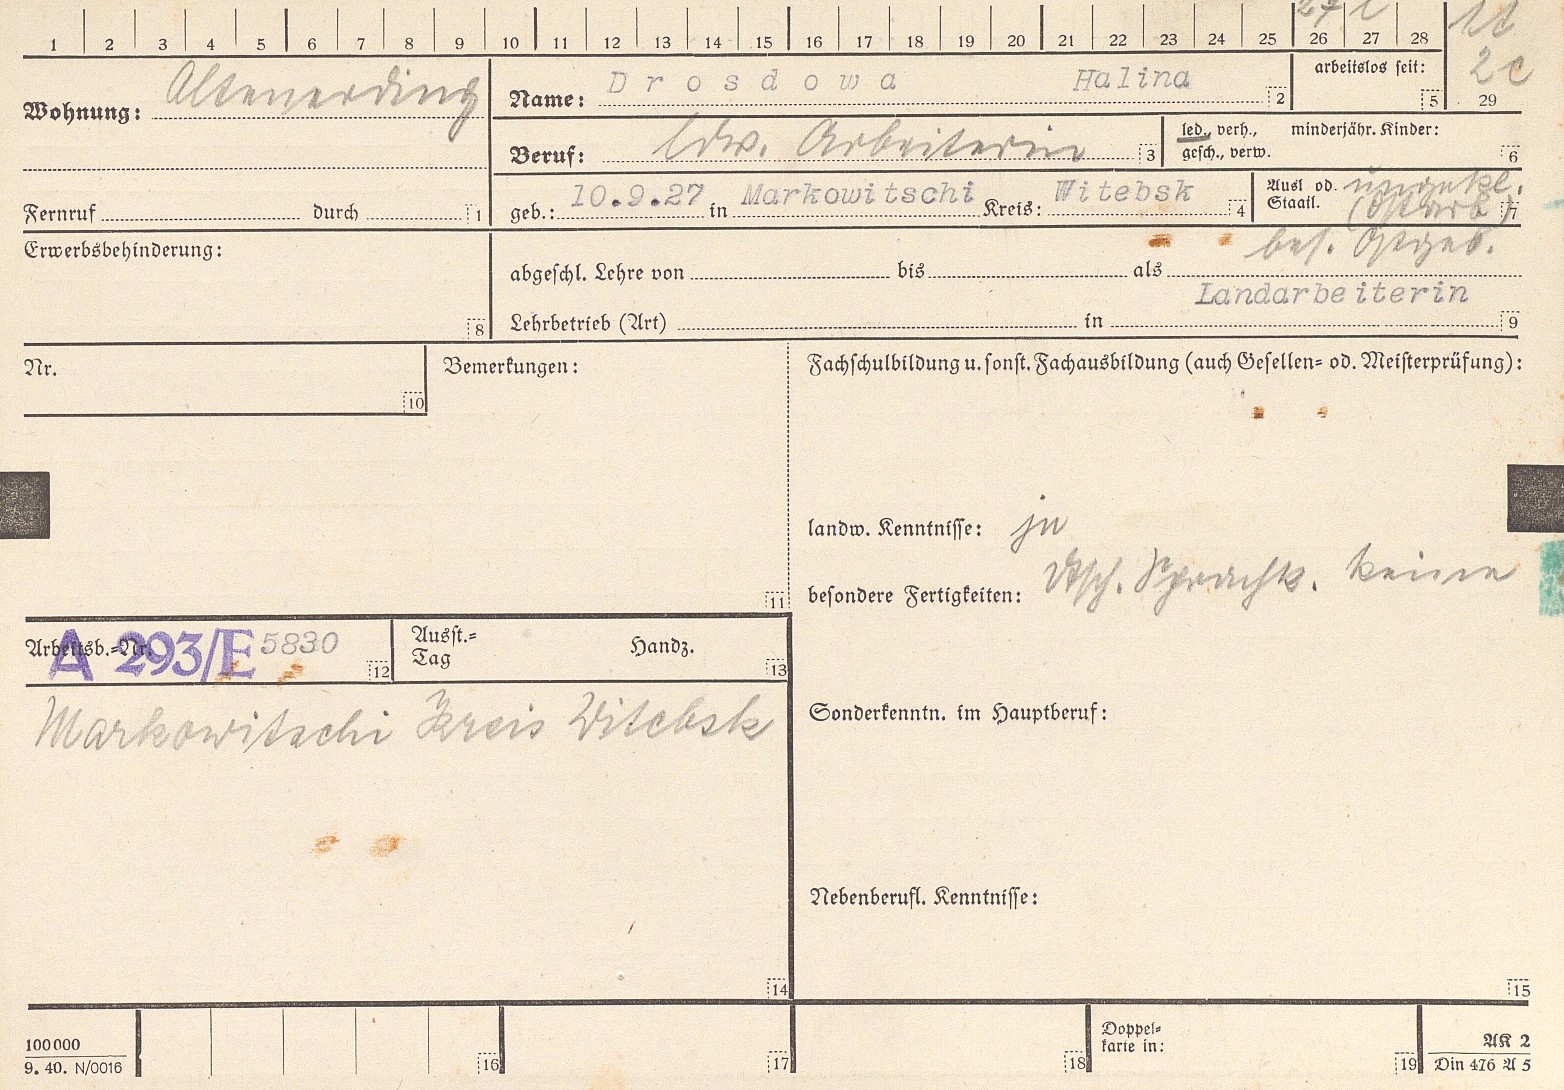 1 2 3 4 5 6 7 8 9 10 11 12 13 14 15 16 17 18 19 20 21 22 23 24 25 26 27 28 29
Wohnung: Altenerding
Name: Drosdowa Halina 2
arbeitslos seit: 5
2c
Beruf: ldw. Arbeiterin 3
led., verh., gesch., verw.
minderjähr. Kinder: 6
Fernruf durch 1
geb.: 10.9.27 in Markowitschi Kreis: Witebsk 4
Ausl od. Staatl. ungekl. (Ostarb.) 7
bes. Ostgeb.
Erwerbsbehinderung: 8
abgeschl. Lehre von bis als
Landarbeiterin
Lehrbetrieb (Art) in 9
Nr. 10
Bemerkungen: 11
Fachschulbildung u. sonst. Fachausbildung (auch Gesellen= od. Meisterprüfung):
landw. Kenntnisse: ja
besondere Fertigkeiten: dtsch. Sprachk. keine
Arbeitsb.=Nr. A 293/E 5830 12
Ausst.=Tag Handz. 13
Markowitschi Kreis Witebsk
Sonderkenntn. im Hauptberuf:
Nebenberufl. Kenntnisse:
14
15
100000
9. 40. N/0016
16 17 18
Doppel=
karte in:
19
AK 2
Din 476 A 5